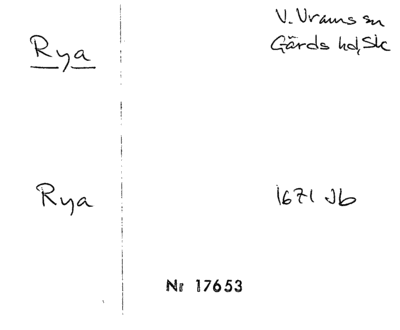 V. Vrams sn
Rya
Gärds hd, Sk
Rya
1671 Jb
Nr 17653